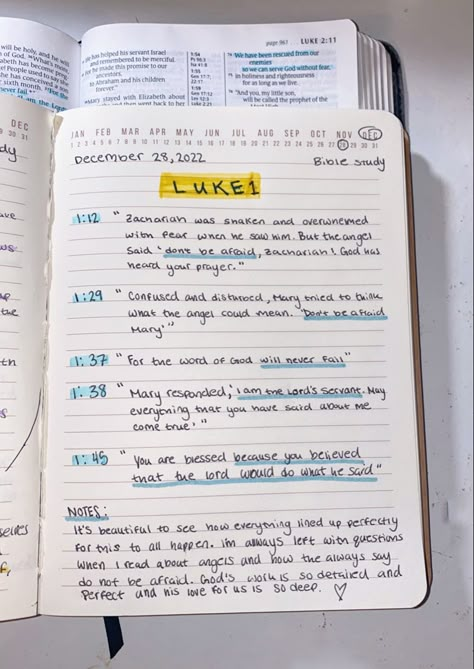 page 967 LUKE 2:11
will be holy, and he will
has helped his servant Israel
and remembered to be merciful.
he made this promise to our
ancestors,
to Abraham and his children
forever."
Mary stayed with Elizabeth about
and then went back to her
We have been rescued from our
enemies
so we can serve God without fear,
in holiness and righteousness
for as long as we live.
"And you, my little son,
will be called the prophet of the
DEC
JAN FEB MAR APR MAY JUN JUL AUG SEP OCT NOV DEC
1 2 3 4 5 6 7 8 9 10 11 12 13 14 15 16 17 18 19 20 21 22 23 24 25 26 27 28 29 30 31
December 28, 2022 Bible Study
LUKE 1
1:12 "Zachariah was shaken and overwhelmed
with fear when he saw him. But the angel
said 'don't be afraid, Zachariah! God has
heard your prayer."
1:29 "Confused and disturbed, Mary tried to think
what the angel could mean. 'Don't be afraid
Mary'"
1:37 "For the word of God will never fail"
1:38 "Mary responded, 'I am the Lord's servant. May
everything that you have said about me
come true'"
1:45 "You are blessed because you believed
that the lord would do what he said"
NOTES:
It's beautiful to see how everything lined up perfectly
for this to all happen. im always left with questions
when I read about angels and how the always say
do not be afraid. God's work is so detailed and
perfect and his love for us is so deep. ♡